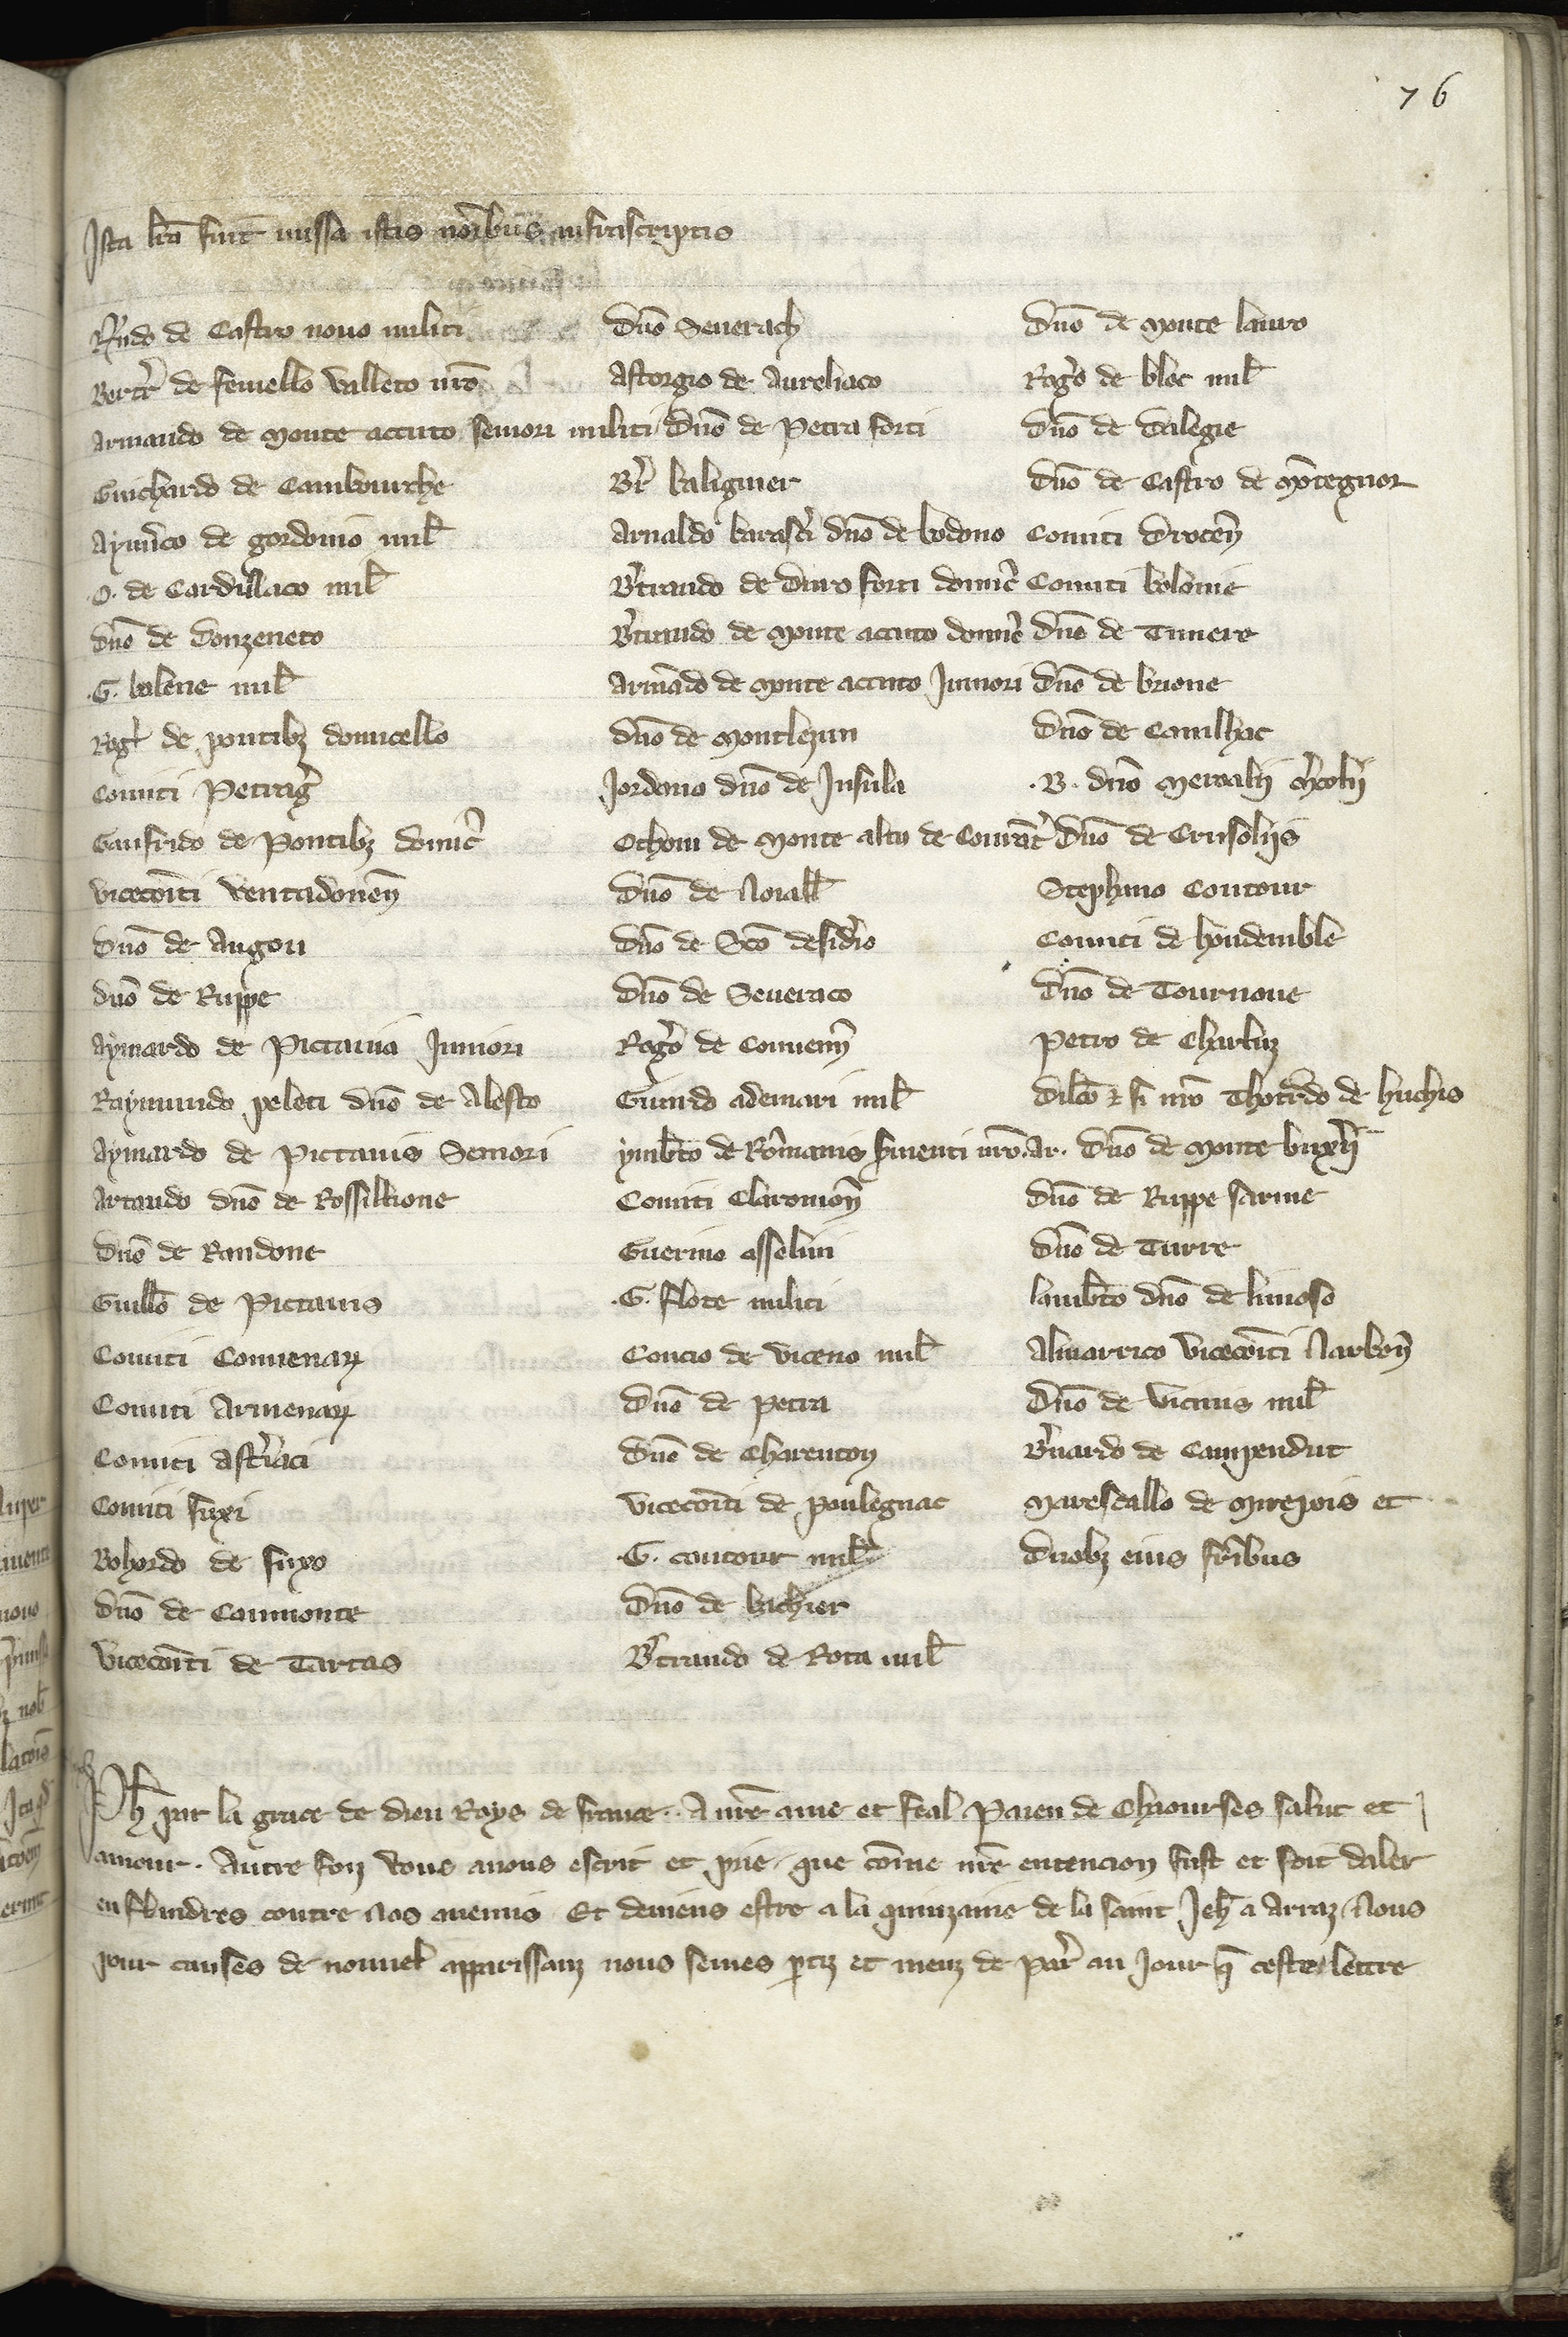 76
Ista lra fuit missa istis noibus infrascriptis
Rndo de Castro novo militi
Bertr de femello valleto nro
Armando de Monte acuto seniori militi
Guichardo de Cambourche
Aymico de gordonio mil
O. de Cardillaco mil
Dno de Donzeneto
.G. balene mil
Rog de pontibz domicello
Comiti Petrag
Gaufrido de Pontibz domic
vicecoiti ventadonen
Dno de Angou
dno de Ruppe
Aymardo de Pictavia Juniori
Raymundo peleti dno de Alesto
Aymardo de Pictavis Seniori
Artaudo dno de Rossillione
Dno de Randone
Guillo de Pictavis
Comiti Convenar
Comiti Armenar
Comiti astriaci
Comiti fuxi
Bohordo de fuxo
dno de Caumonte
Vicecoiti de Tartas
Dno Severach
Astorgio de Aureliaco
Dno de Petra forti
Br balignier
Arnaldo barasci dno de bodono
Btrando de Duro forti domic
Btrando de Monte acuto domic
Armado de Monte acuto Juniori
dno de Montlezun
Jordano dno de Insula
Othoni de Monte alto de
Dno de Noiall
Dno de Sco desidio
Dno de Severaco
Rogo de Convenn
Guirdo ademari mil
ymbto de Romanis nro
Comiti Claromon
Guerino assolini
.G. flote militi
Concio de viceno mil
Dno de petra
Dno de Charenton
vicecoiti de poulegnac
.G. contour mil
Dno de bachier
Btrando de Rota mil
Dno de Monte lauro
Rogo de bloc mil
Dno de Dalegre
Dno de Castro de
Comiti Drocen
Comiti bolonie
Dno de Tinere
Dno de brione
Dno de Canilhac
.B. dno
Dno de Crusoliis
Stephano Contour
Comiti de
Dno de Tournone
Petro de Charluz
Dilco fi nro de huchis
Ar. Dno de Monte
Dno de Ruppe
Dno de Turre
lambto dno de limoso
Almarrico vicecoiti Narbon
Dno de vicinis mil
Bnardo de Campendut
Marescallo de Mirepois et
duobz eius fribus
Ph par la grace de dieu Roys de france. A nre ame et feal Paien de Chaourses salut et
amour. Autre foiz vous avons escrit et prie que come nre entencion fust et soit daler
en flandres contre Nos anemis Et deviens estre a la quinzaine de la saint Jeh a Arraz Nous
pour causes de nouvel apparissanz nous semes ptiz et meuz de Par au jour q ceste lettre